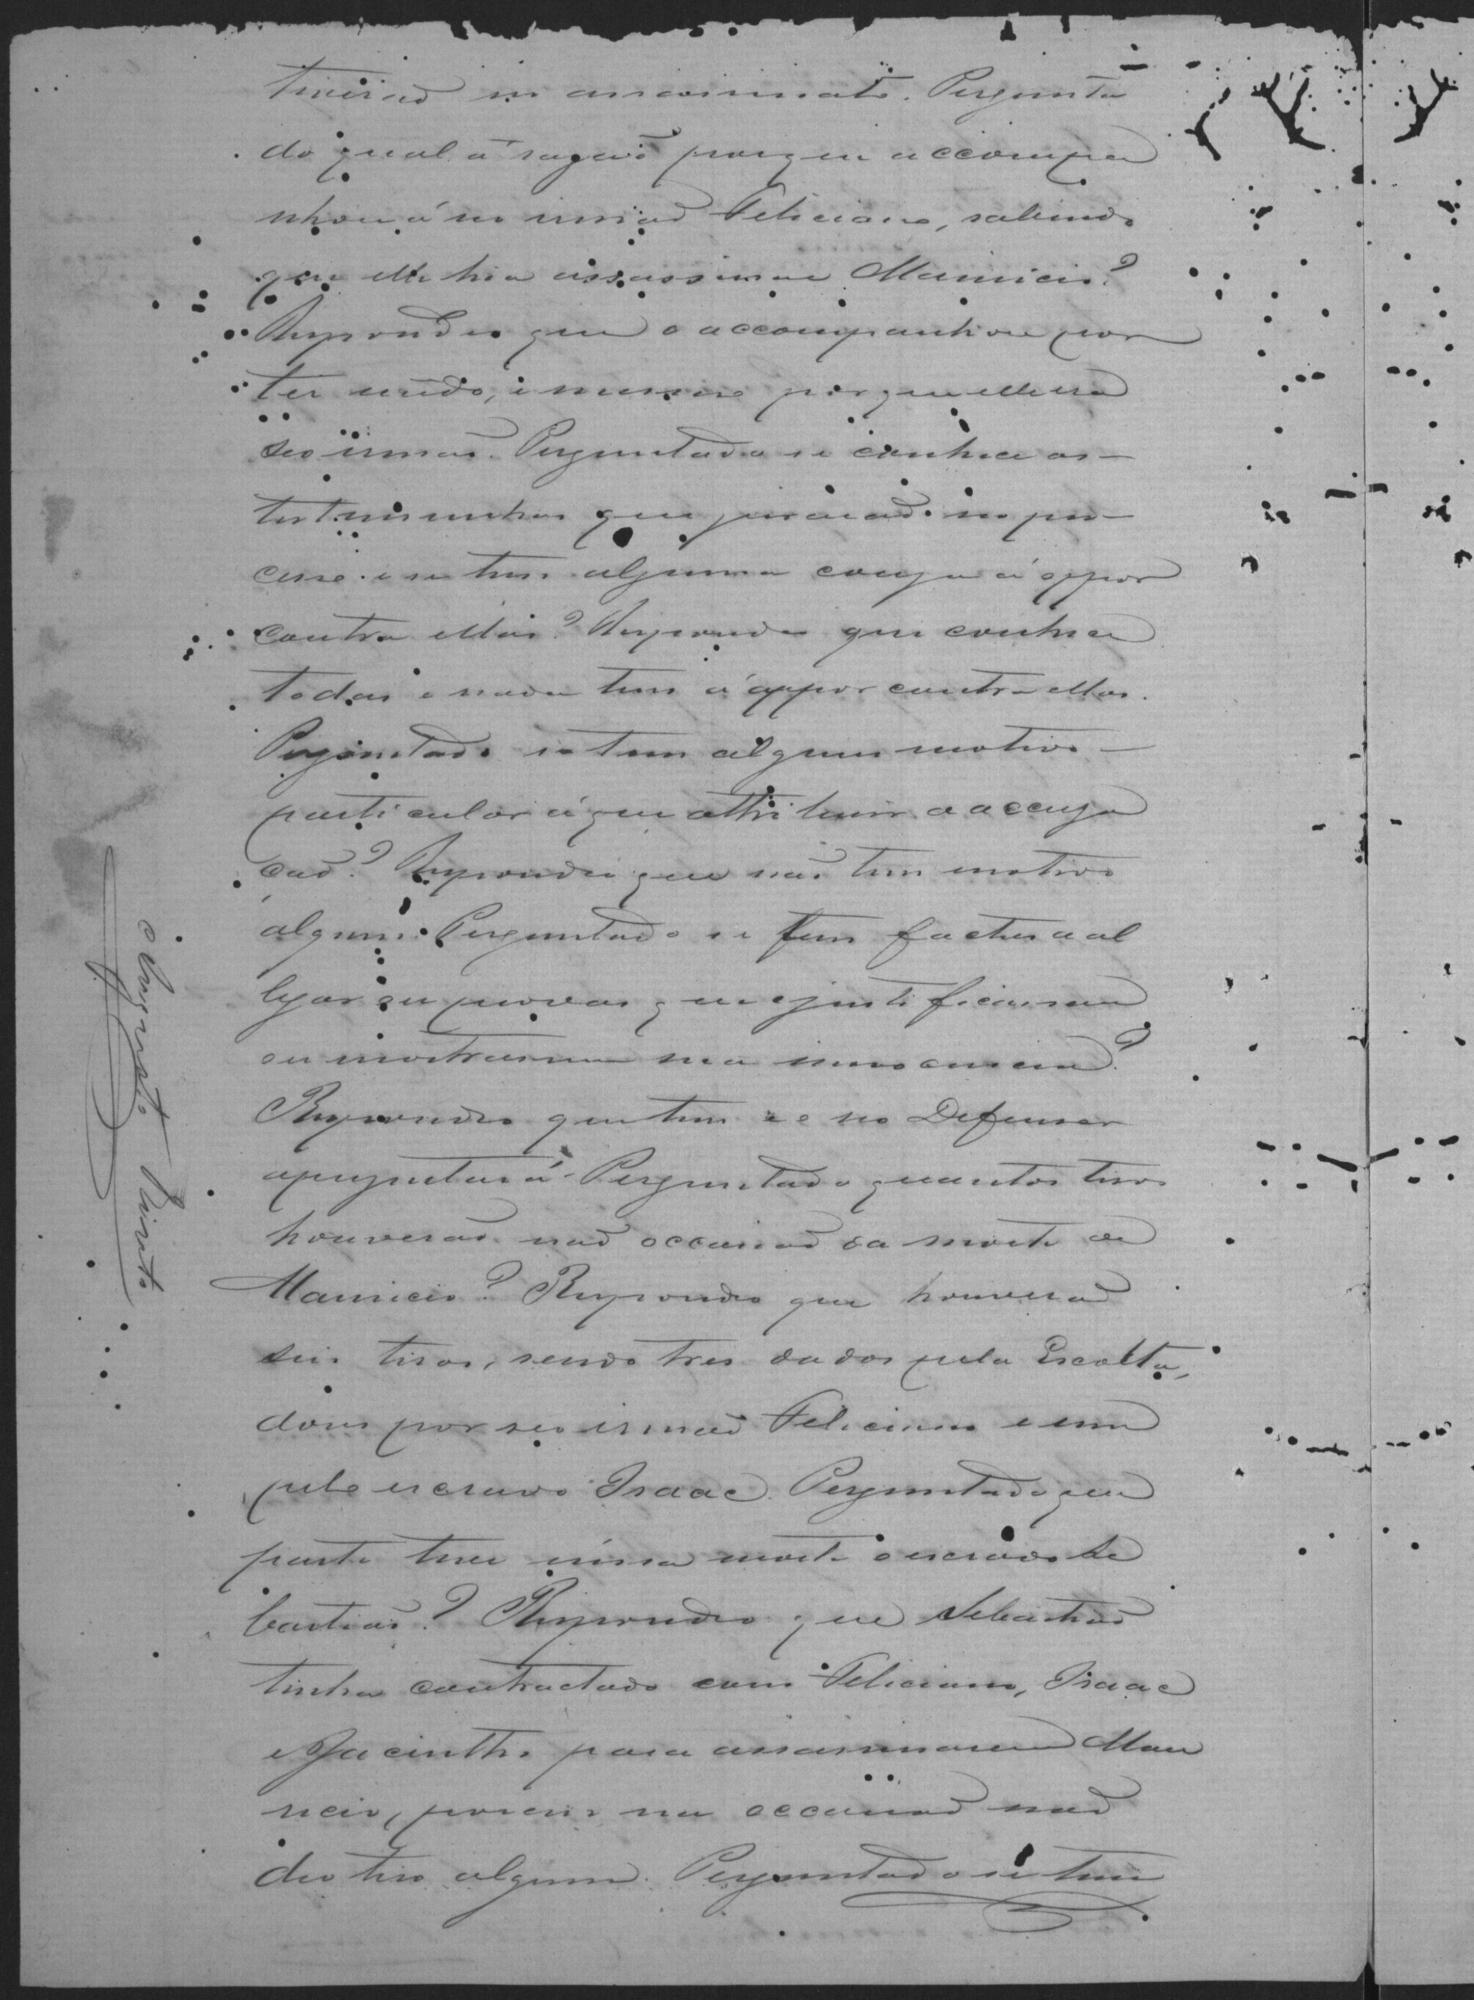 tiverão no assassinato. Pergunta
do qual a rasão porque accompa
nhou á seo irmão Feliciano, sabendo
que elle hia assassinar Mauricio?
Respondeo que o accompanhou por
ter medo, e mesmo porque elle era
seo irmão. Perguntado se conhece as
testemunhas que jurarão no pro-
cesso e se tem alguma cousa á oppor
contra ellas? Respondeo que conhece
todas e nada tem á oppor contra ellas.
Perguntado se tem algum motivo
particular á que attribuir a accusa
ção? Respondeo que não tem motivo
algum. Perguntado se tem factos a al
legar ou provas que o justifiquem
ou mostrem sua innocencia?
Respondeo que tem e seo Defensor
apresentará. Perguntado quantos tiros
houverão na occasião da morte de
Mauricio? Respondeo que houverão
seis tiros, sendo tres dados pela Escolta,
dous por seo irmão Feliciano e um
pelo escravo Isaac. Perguntado que
parte teve nessa morte o escravo Se
bastião? Respondeo que Sebastião
tinha contractado com Feliciano, Isaac
e Jacintho para assassinarem Mau
ricio, porem na occasião não
deo tiro algum. Perguntado se tem